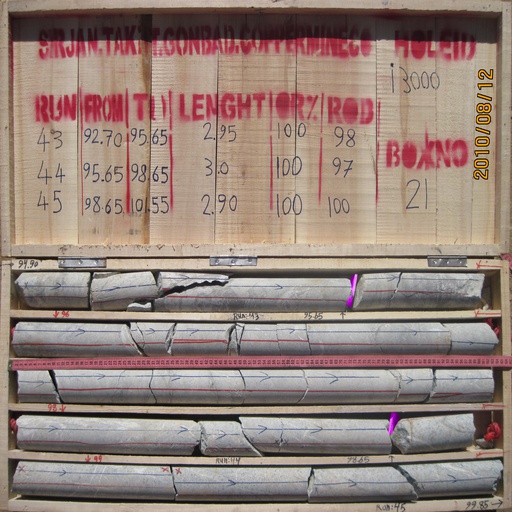 SIRJAN.TAKHT.GONBAD.COPPERMINECO HOLEID
13000
RUN FROM TO LENGHT OR% RQD
43 92.70 95.65 2.95 100 98
44 95.65 98.65 3.0 100 97
45 98.65 101.55 2.90 100 100
BOXNO
21
2010/08/12
94.90
96 RUN:43 95.65
98
99 RUN:44 98.65
RUN:45 99.85